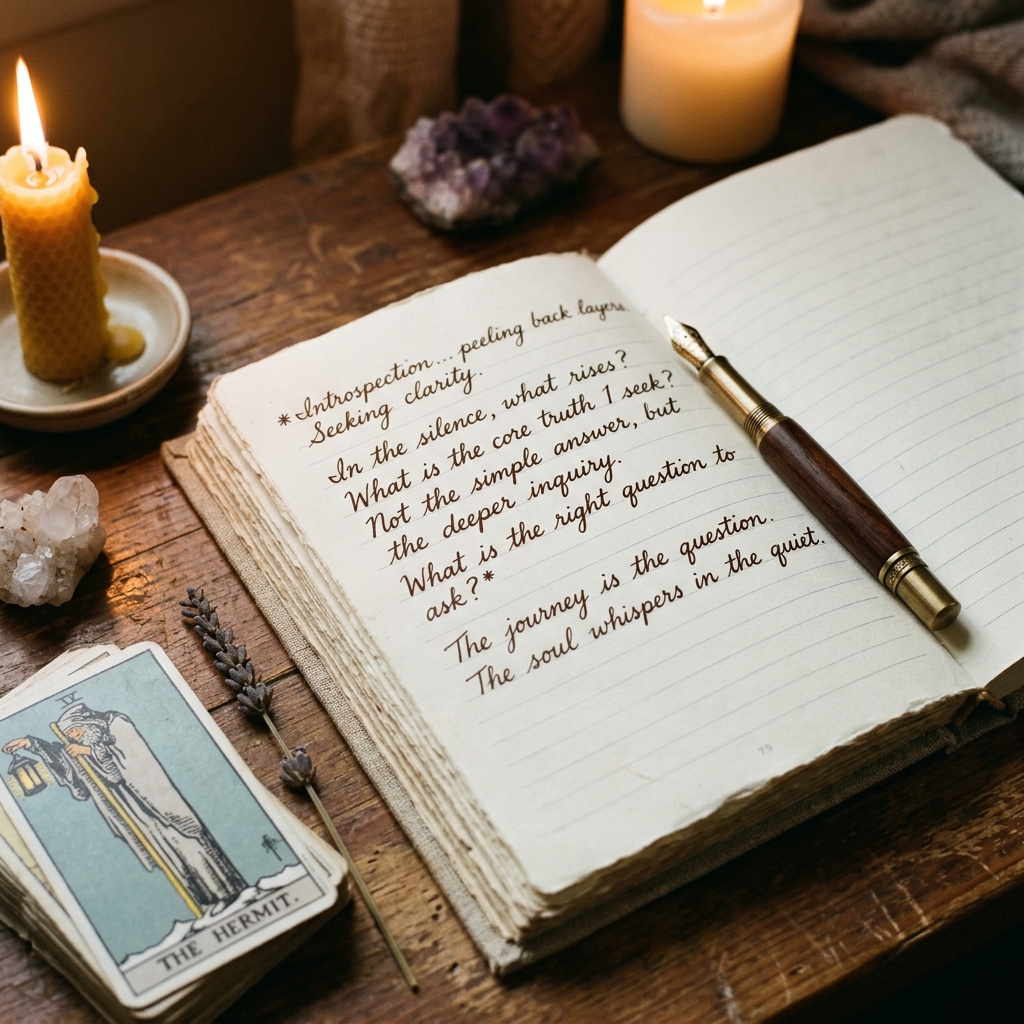 *Introspection... peeling back layers
Seeking clarity.
In the silence, what rises?
What is the core truth I seek?
Not the simple answer, but
the deeper inquiry.
What is the right question to
ask?*
The journey is the question.
The soul whispers in the quiet.
19
IX
THE HERMIT.